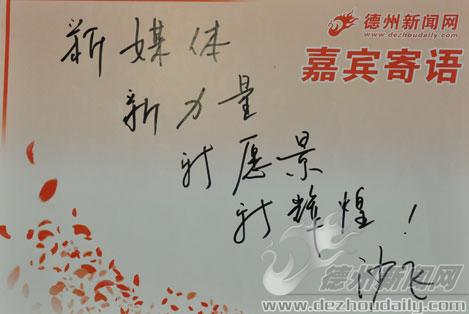 德州新闻网
www.dezhoudaily.com
嘉宾寄语
新媒体
新力量
新愿景
新辉煌！
沙飞
德州新闻网
www.dezhoudaily.com